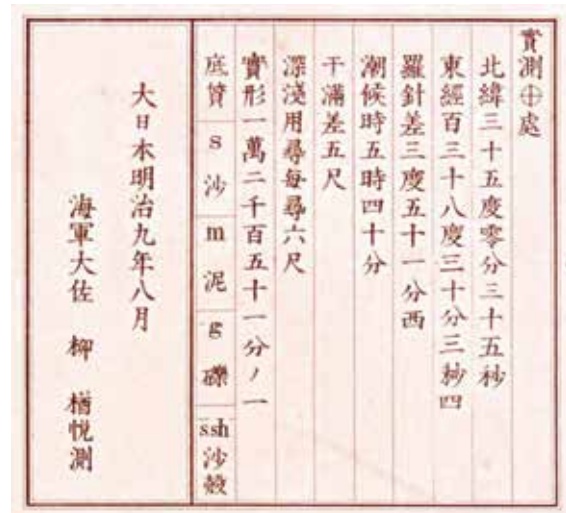 實測⊕處
北緯三十五度零分三十五秒
東經百三十八度三十分三秒四
羅針差三度五十一分西
潮候時五時四十分
干滿差五尺
深淺用尋每尋六尺
實形一萬二千百五十一分ノ一
底質 s 沙 m 泥 g 礫 ssh 沙殻
大日本明治九年八月
海軍大佐 柳 楢悅測